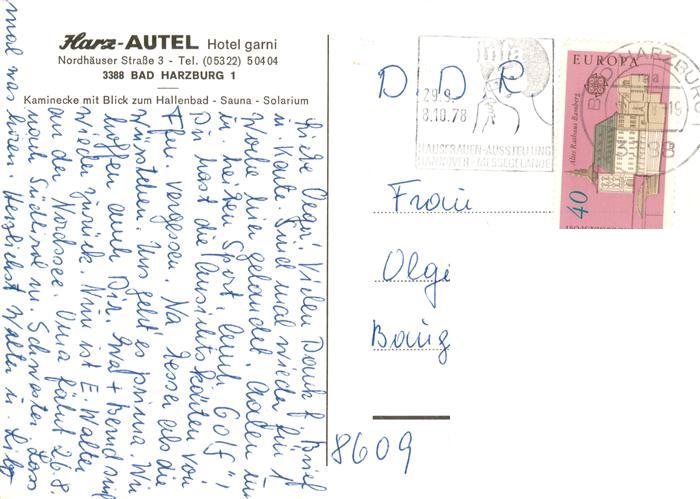 Harz-AUTEL Hotel garni
Nordhäuser Straße 3 - Tel. (05322) 50404
3388 BAD HARZBURG 1
Kaminecke mit Blick zum Hallenbad - Sauna - Solarium
Liebe Olgi! Vielen Dank f. Brief
u. Karte. Sind mal wieder für 1
Woche hier gelandet. Aalen im
u. treiben Sport auch "Golf"!
Du hast die Ansichtskarten von
Ffm. vergessen. Na besser als die
Würstchen. Uns geht es prima. Wir
hoffen auch Dir. Eva + Bernd sind
wieder zurück. Nun ist E. Walter
an der Nordsee. Oma fährt 26.8.
nach Südtirol m. Schwester. Lass
mal was hören. Herzlichst Walter u.
D. D R
Frau
Olgi
8609
infa
29.9.
8.10.78
HAUSFRAUEN-AUSSTELLUNG
HANNOVER-MESSEGELÄNDE
EUROPA
Altes Rathaus Bamberg
40
BAD HARZBURG 1
3388